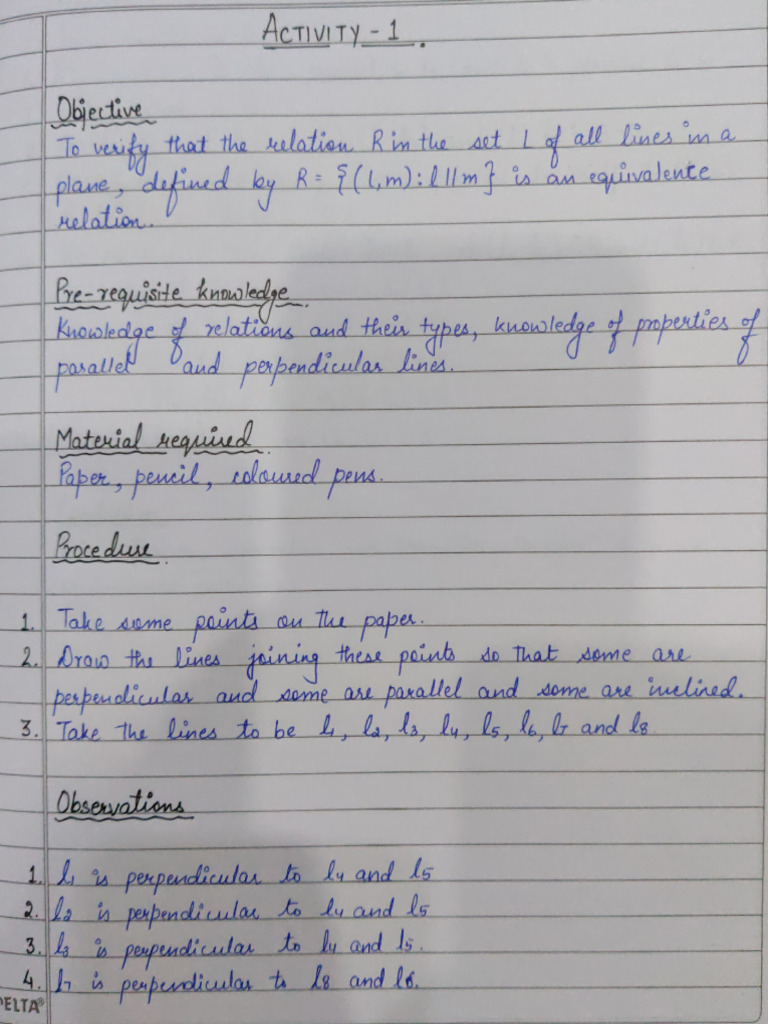 ACTIVITY - 1.
Objective
To verify that the relation R in the set L of all lines in a
plane, defined by R = {(l,m) : l || m} is an equivalence
relation.
Pre-requisite knowledge.
Knowledge of relations and their types, knowledge of properties of
parallel and perpendicular lines.
Material required.
Paper, pencil, coloured pens.
Procedure.
1. Take some points on the paper.
2. Draw the lines joining these points so that some are
perpendicular and some are parallel and some are inclined.
3. Take the lines to be l1, l2, l3, l4, l5, l6, l7 and l8
Observations
1. l1 is perpendicular to l4 and l5
2. l2 is perpendicular to l4 and l5
3. l3 is perpendicular to l4 and l5.
4. l7 is perpendicular to l8 and l6.
DELTA®